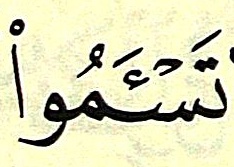 تَسْـَٔمُوا۟